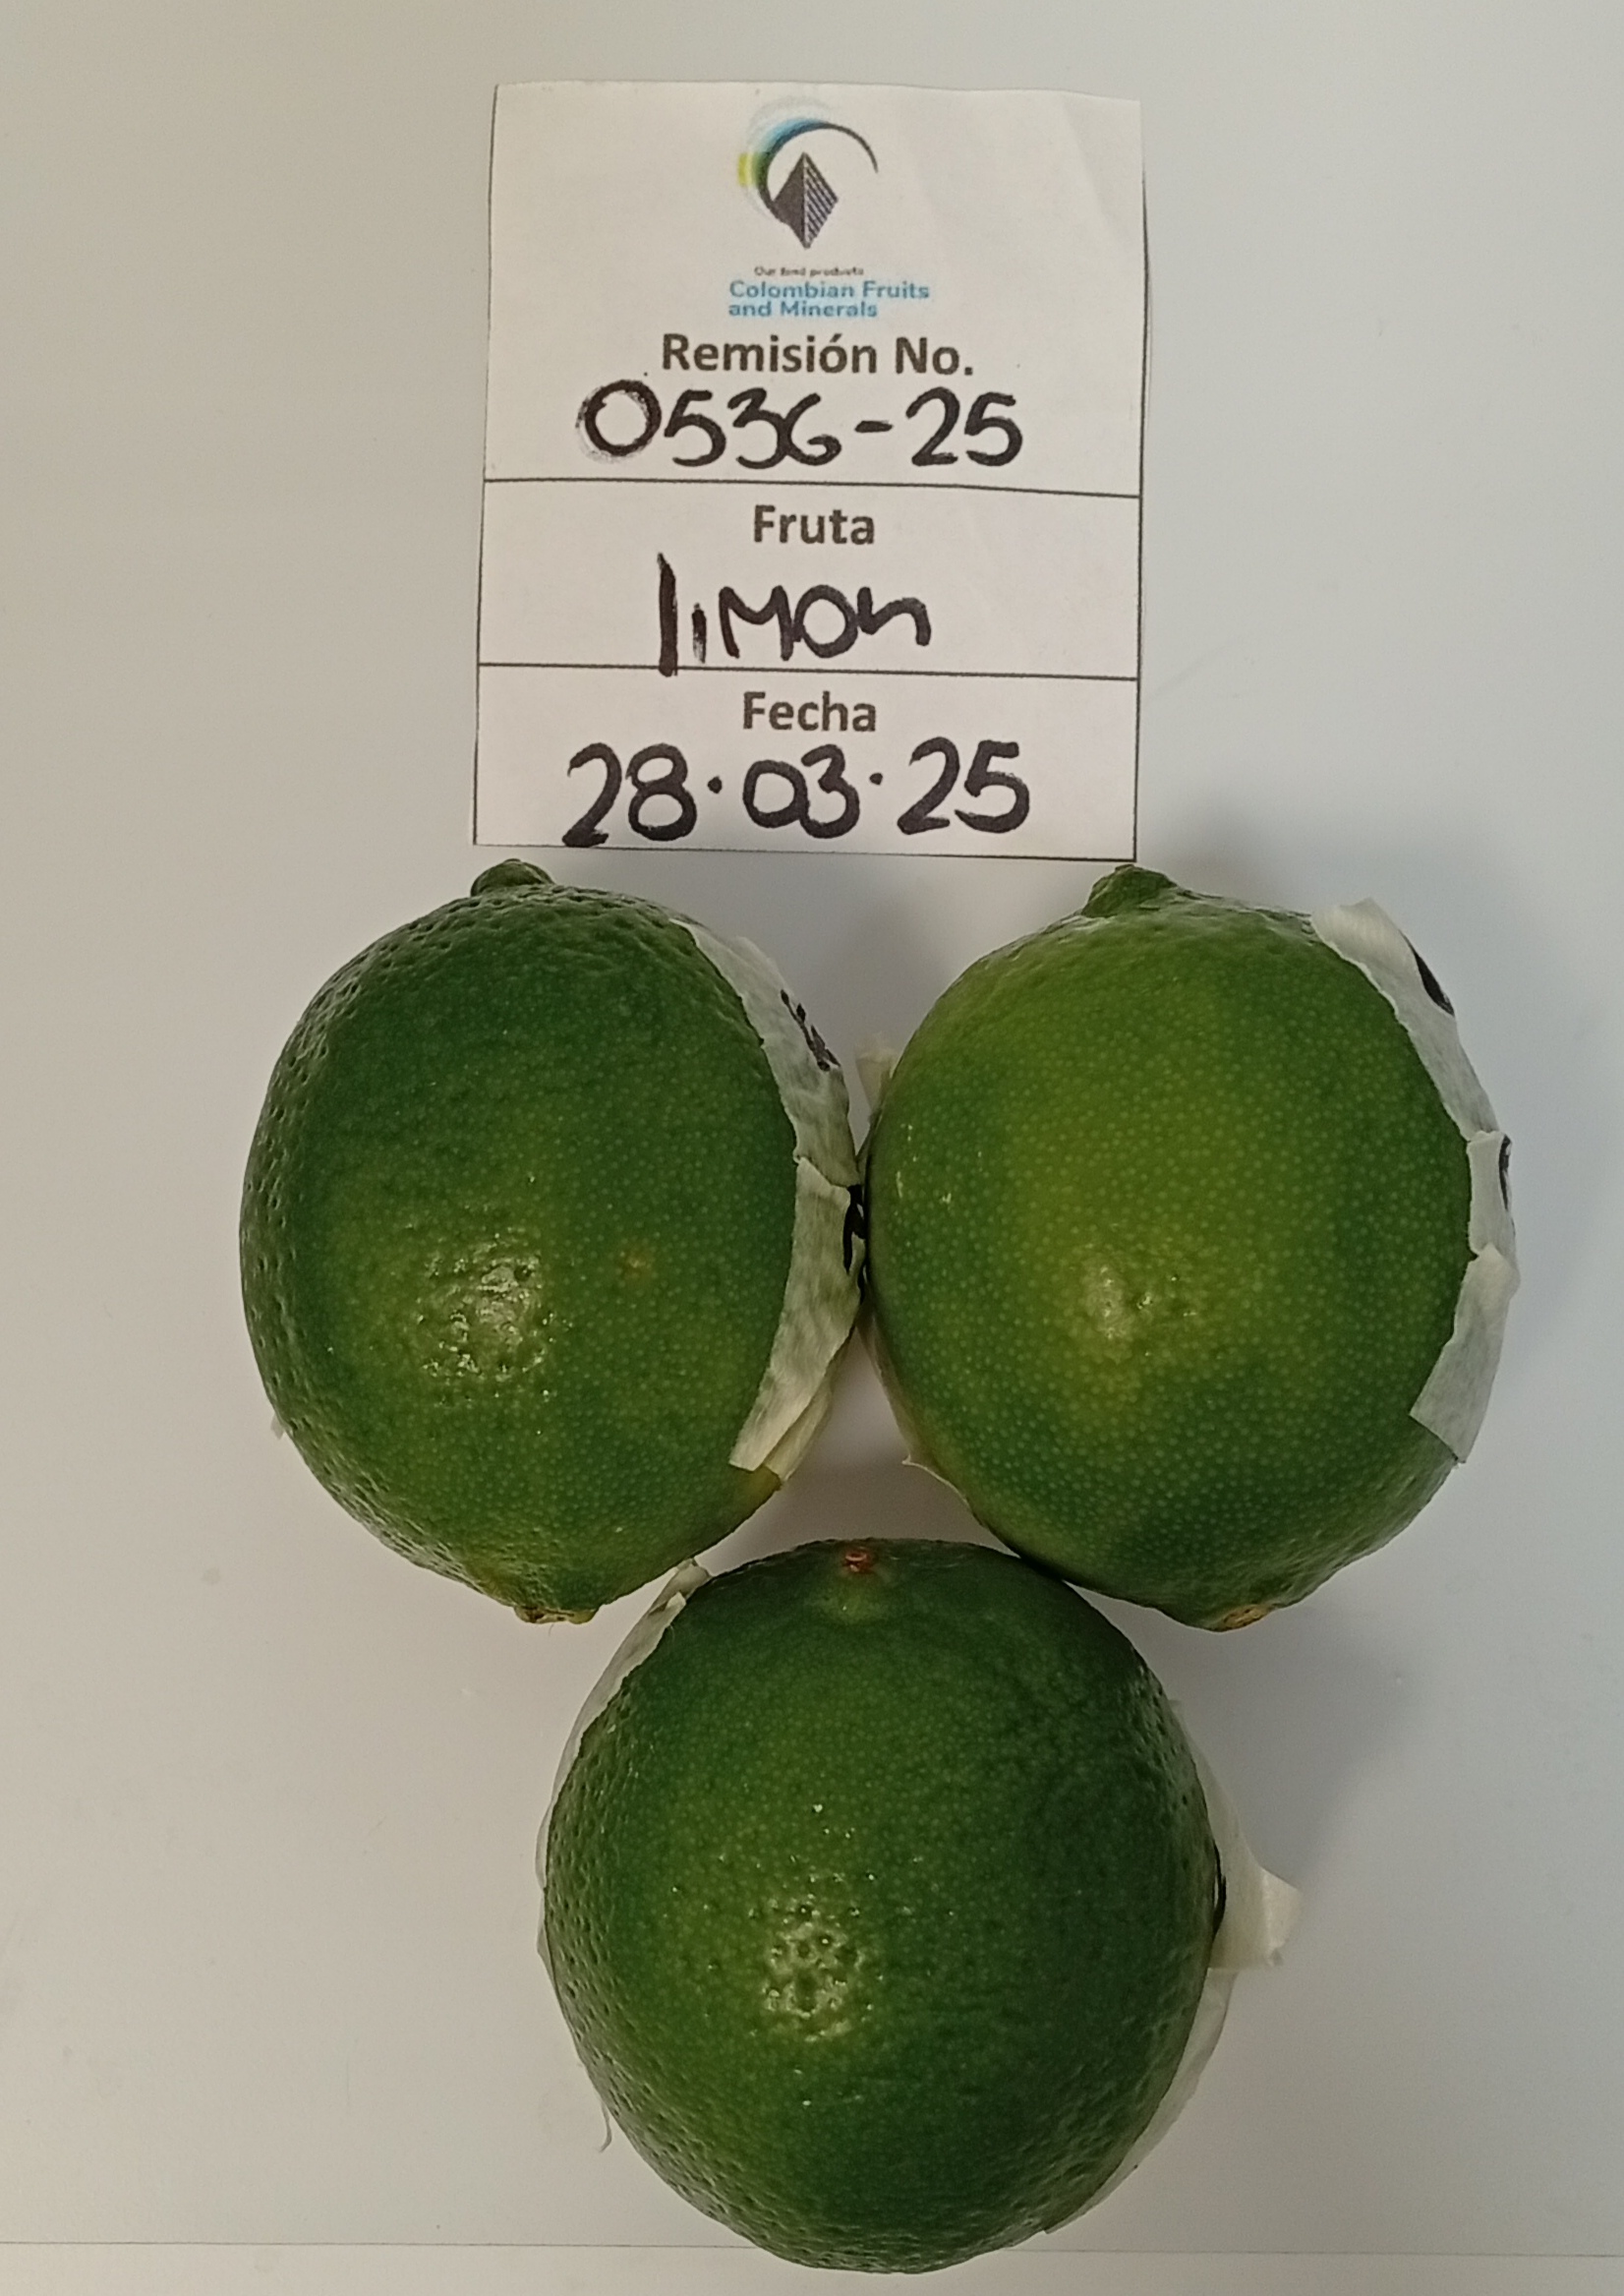 Our food products
Colombian Fruits
and Minerals
Remisión No.
0536-25
Fruta
limon
Fecha
28.03.25